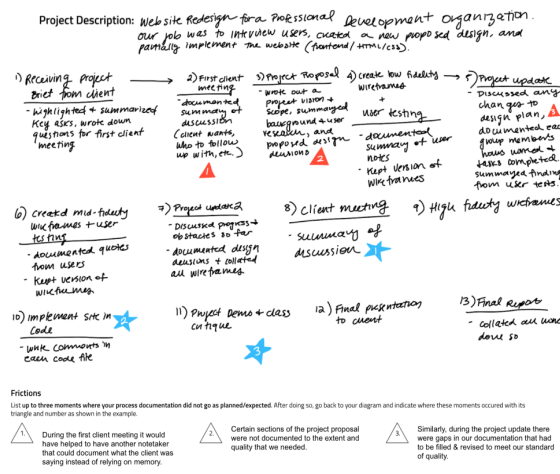 Project Description: Website Redesign for a Professional Development organization.
our job was to interview users, created a new proposed design, and
partially implement the website (frontend/HTML/CSS).
1) Receiving project
Brief from client
- highlighted & summarized
key asks, wrote down
questions for first client
meeting
2) First client
meeting
- documented
summary of
discussion
(client wants,
who to follow
up with, etc.)
1
3) Project Proposal
- wrote out a
project vision &
scope, summarized
background & user
research, and
proposed design
decisions
2
4) create low fidelity
wireframes
+
user testing
- documented
summary of user
notes
- Kept version of
wireframes
5) Project update
- Discussed any
changes to
design plan,
documented each
group members
hours worked &
tasks completed.
summarized finding
from user tests.
3
6) Created mid-fidelity
wireframes + user
testing
- documented quotes
from users
- Kept version of
wireframes
7) Project update 2
- Discussed progress &
obstacles so far
- documented design
decisions & collated
all wireframes
8) Client meeting
- summary of
discussion
1
9) High fidelity wireframes
10) Implement site in
Code
- write comments in
each code file
2
11) Project Demo & class
critique
3
12) Final presentation
to client
13) Final Report
- collated all work
done so
Frictions
List up to three moments where your process documentation did not go as planned/expected. After doing so, go back to your diagram and indicate where these moments occured with its
triangle and number as shown in the example.
1.
During the first client meeting it would
have helped to have another notetaker
that could document what the client was
saying instead of relying on memory.
2.
Certain sections of the project proposal
were not documented to the extent and
quality that we needed.
3.
Similarly, during the project update there
were gaps in our documentation that had
to be filled & revised to meet our standard
of quality.